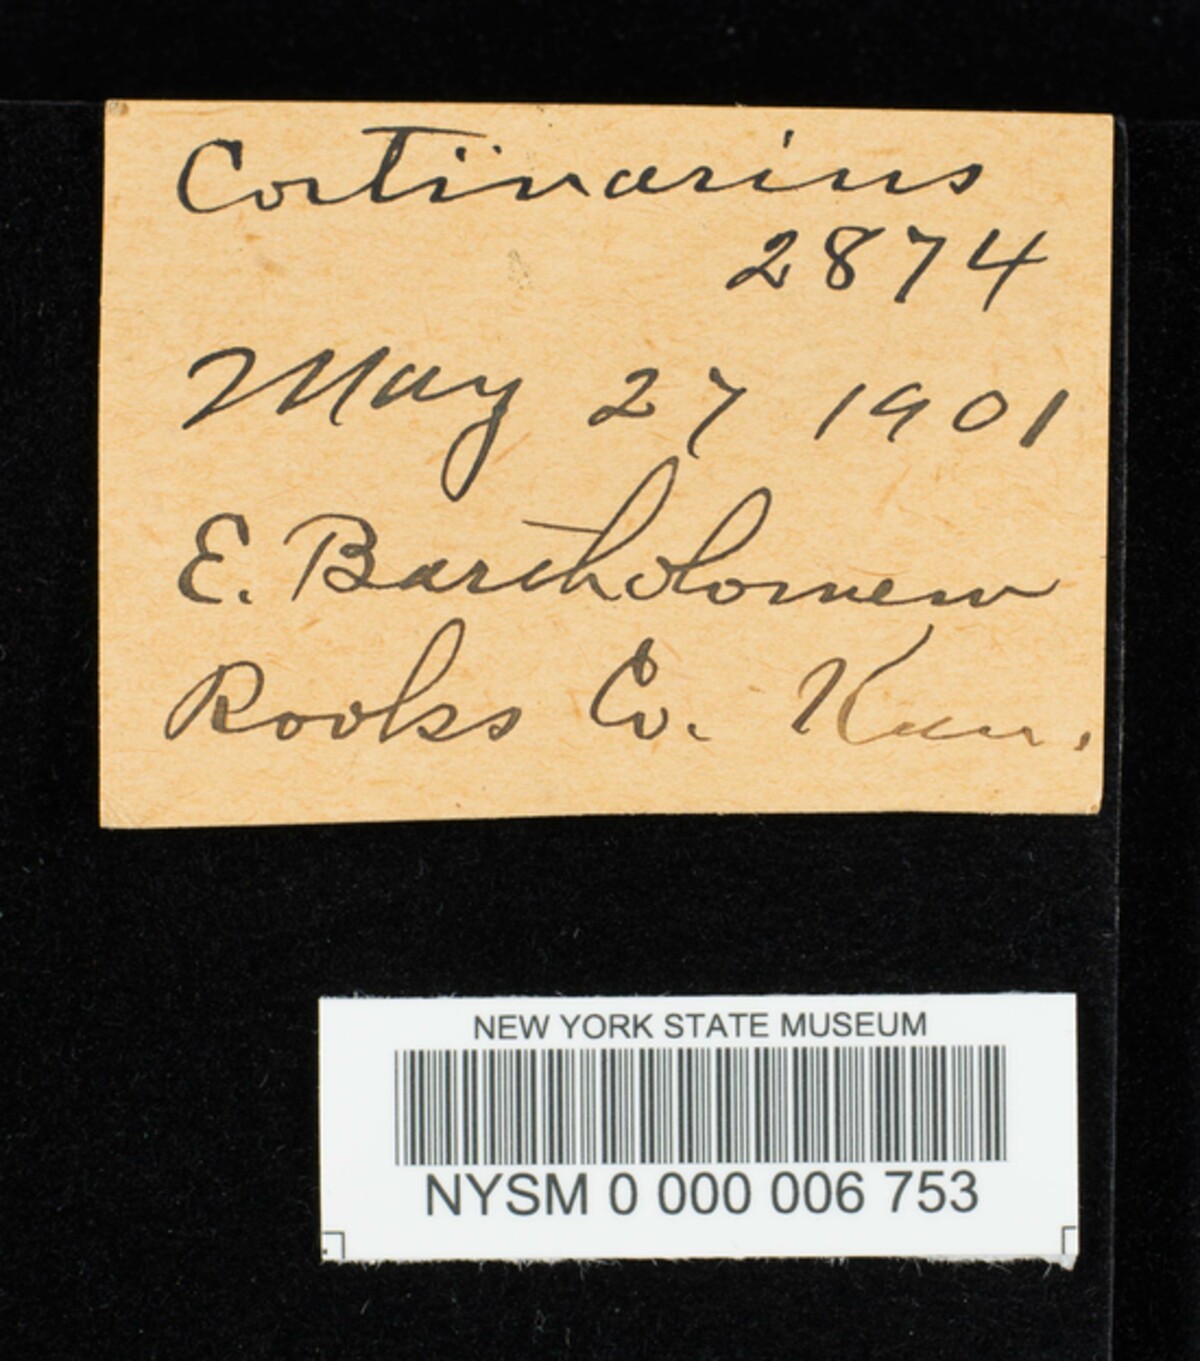 Cortinarius
2874
May 27 1901
E. Bartholomew
Rooks Co. Kan.
NEW YORK STATE MUSEUM
NYSM 0 000 006 753